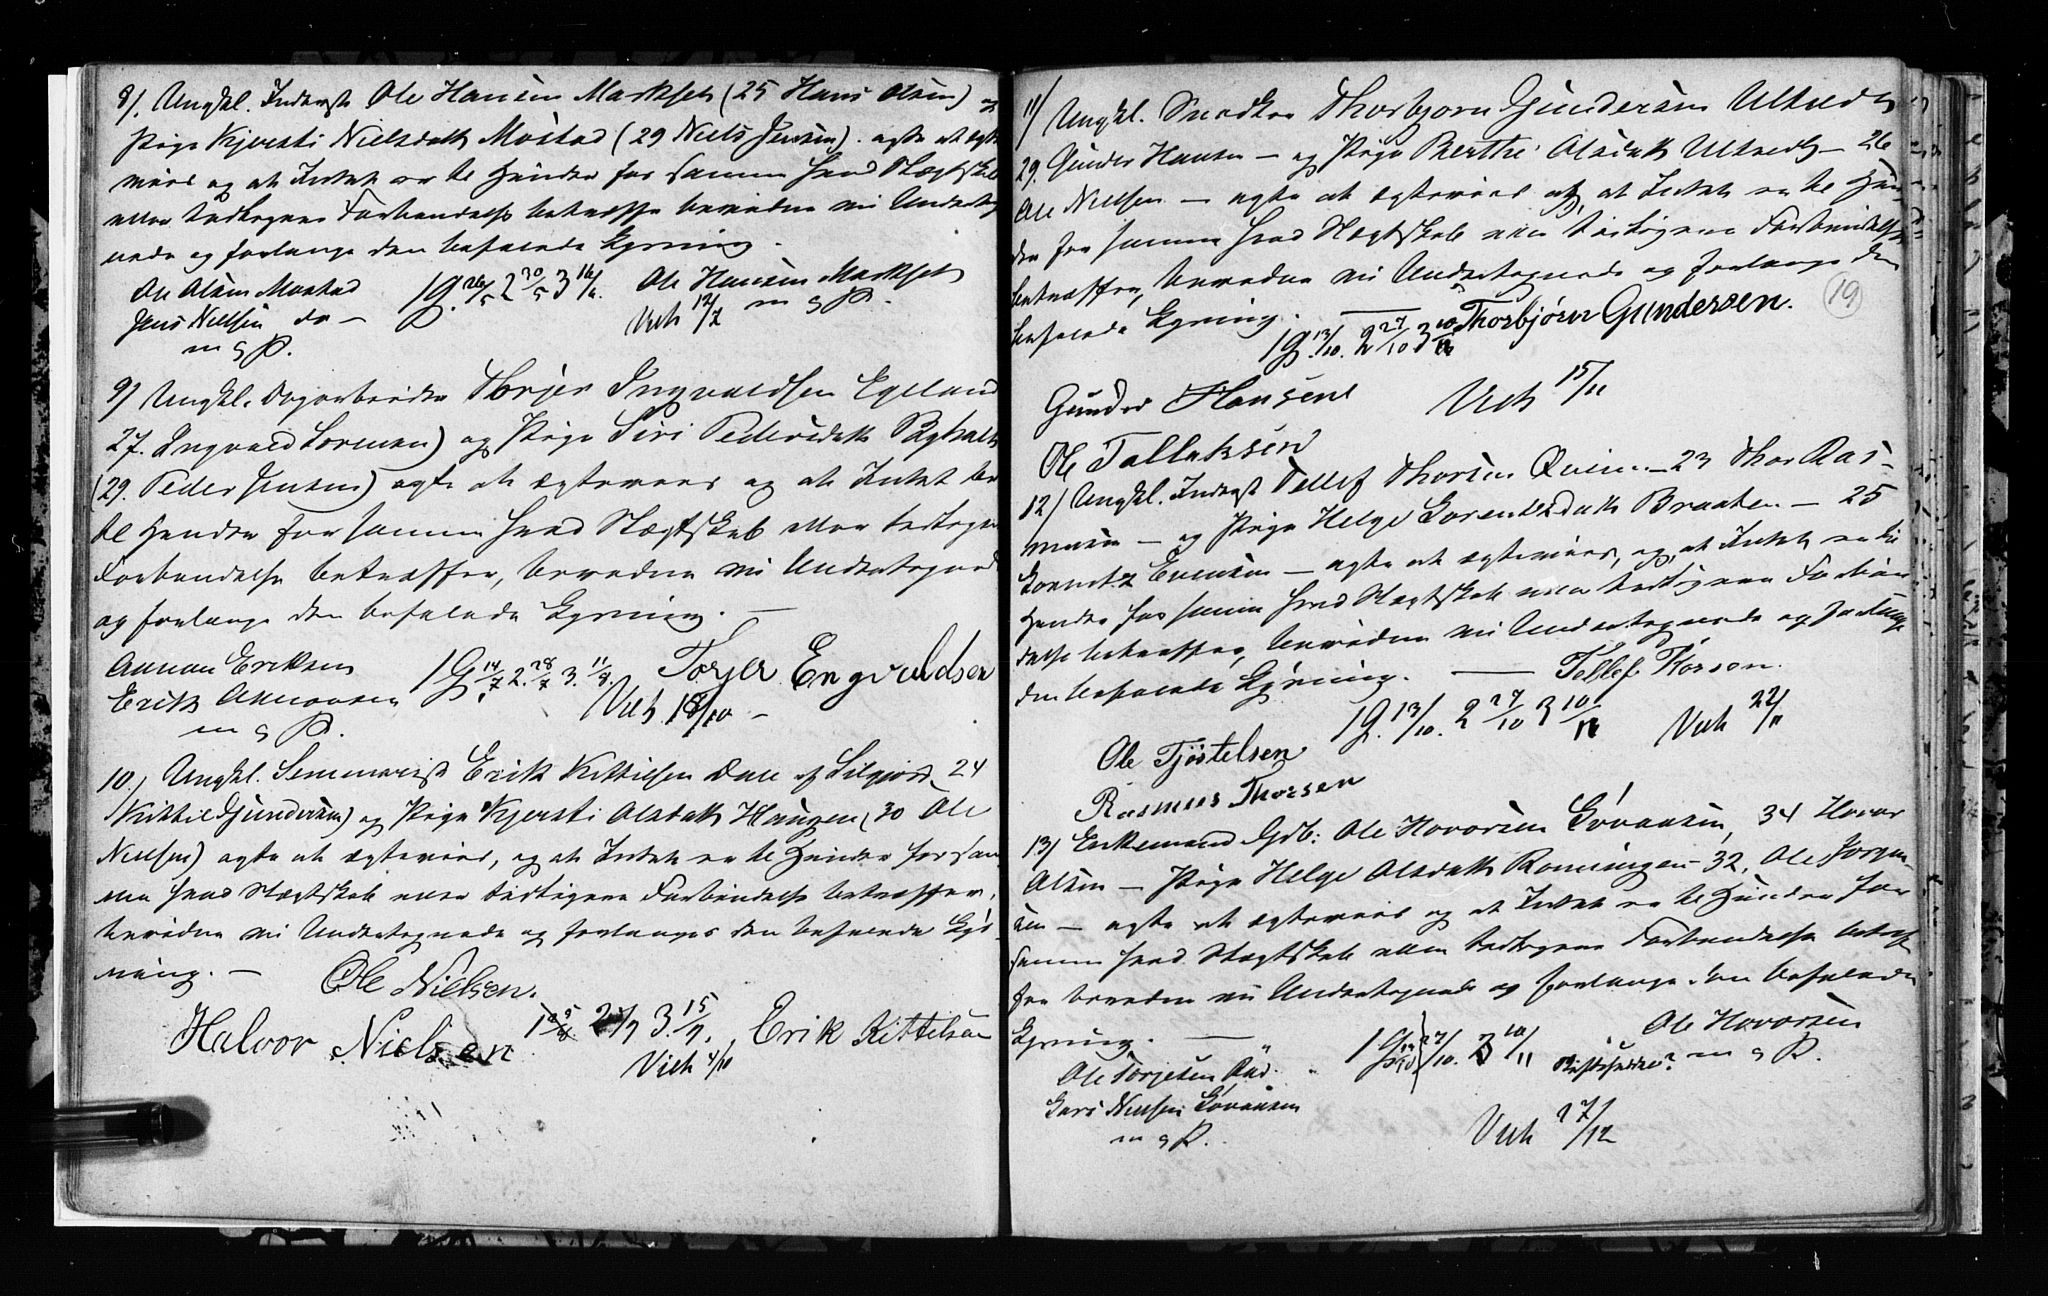 8/. Ungkl. Inderst Ole Hansen Markset (25 Hans Olsen) og
Pige Kjersti Nielsdatt. Mostad (29 Niels Jensen). agte at ægte
vies og at Intet er til Hinder for samme hvad Slægtskab
eller tidligere Forbindelse betræffe bevidne vi Underteg
nede og forlange den befalede Lysning.
Ole Olsen Mostad
1 G. 26/5 2 30/5 3 16/6
Ole Hansen Markset
Jens Nielsen do —
Viet 12/7
m s P.
m s P.
9/ Ungkl. Dagarbeider Thorjer Ingvaldsen Egeland
27. Ingvald Lorensen) og Pige Siri Pedersdatt.
(29. Peder Jensen) agte at ægtevies og at Intet er
til Hinder for samme hvad Slægtskab eller tidligere
Forbindelse betræffer, bevidne vi Undertegnede
og forlange den befalede Lysning. —
Aanon Eriksen
1 G 14/7 2. 28/7 3. 11/8.
Torjer Engvaldsen
Erik Aanonsen
Viet 18/10 —
m s P.
10.) Ungkl. Seminarist Erik Kittilsen Dale af Siljord, 24
(Kittil Gjundersen) og Pige Kjersti Olsdatt. Haugen (30 Ole
Nielsen) agte at ægtevies, og at Intet er til Hinder for sam-
me hvad Slægtskab eller tidligere Forbindelse betræffer,
bevidne vi Undertegnede og forlanges den befalede Lys-
ning. —
Ole Nielsen.
Halvor Nielsen
3. 15/9.
Erik Kittelsen
Viet 4/10
11/ Ungkl. Snedker Thorbjørn Gundersen Ulltvedt
29. Gunder Hansen — og Pige Berthe Olsdatt Ulltvedt — 26
Ole Nielsen — agte at ægtevies og, at Intet er til Hin-
der for samme hvad Slægtskab eller tidligere Forbindelse
betræffer, bevidne vi Undertegnede og forlange den
befalede Lysning. —
Thorbjørn Gundersen.
19
1 G. 13/10. 2 27/10 3 10/11
Gunder Hansen
Viet 15/11
Ole Tallaksen
12/ Ungkl. Inderst Tellef Thorsen Qveim — 23 Thor Ras-
musen — og Pige Helge Lorentzdatt Braaten — 25
Lorentz Evensen — agte at ægtevies, og, at Intet er til
Hinder for samme hvad Slægtskab eller tidligere Forbin
delse betræffer, bevidne vi Undertegnede og forlange
den befalede Lysning. —
Tellef Thorsen.
1 G. 13/10. 2 27/10 3 10/11
Viet 22/11
Ole Tjøstelsen
Rasmus Thorsen
13/ Enkemand Gdb: Ole Hovorsen Lövaasen, 34 Hovor
Olsen — Pige Helge Olsdatt Ronningen — 32, Ole Jorgen-
sen — agte at ægtevies og at Intet er til Hinder for
samme hvad Slægtskab eller tidligere Forbindelse betræf
fer bevidne vi Undertegnede og forlange den befalede
Lysning. —
Ole Hovorsen
m s P.
Ole Torjesen
Lars Nielsen Lövaasen
m s P.
Viet 27/12